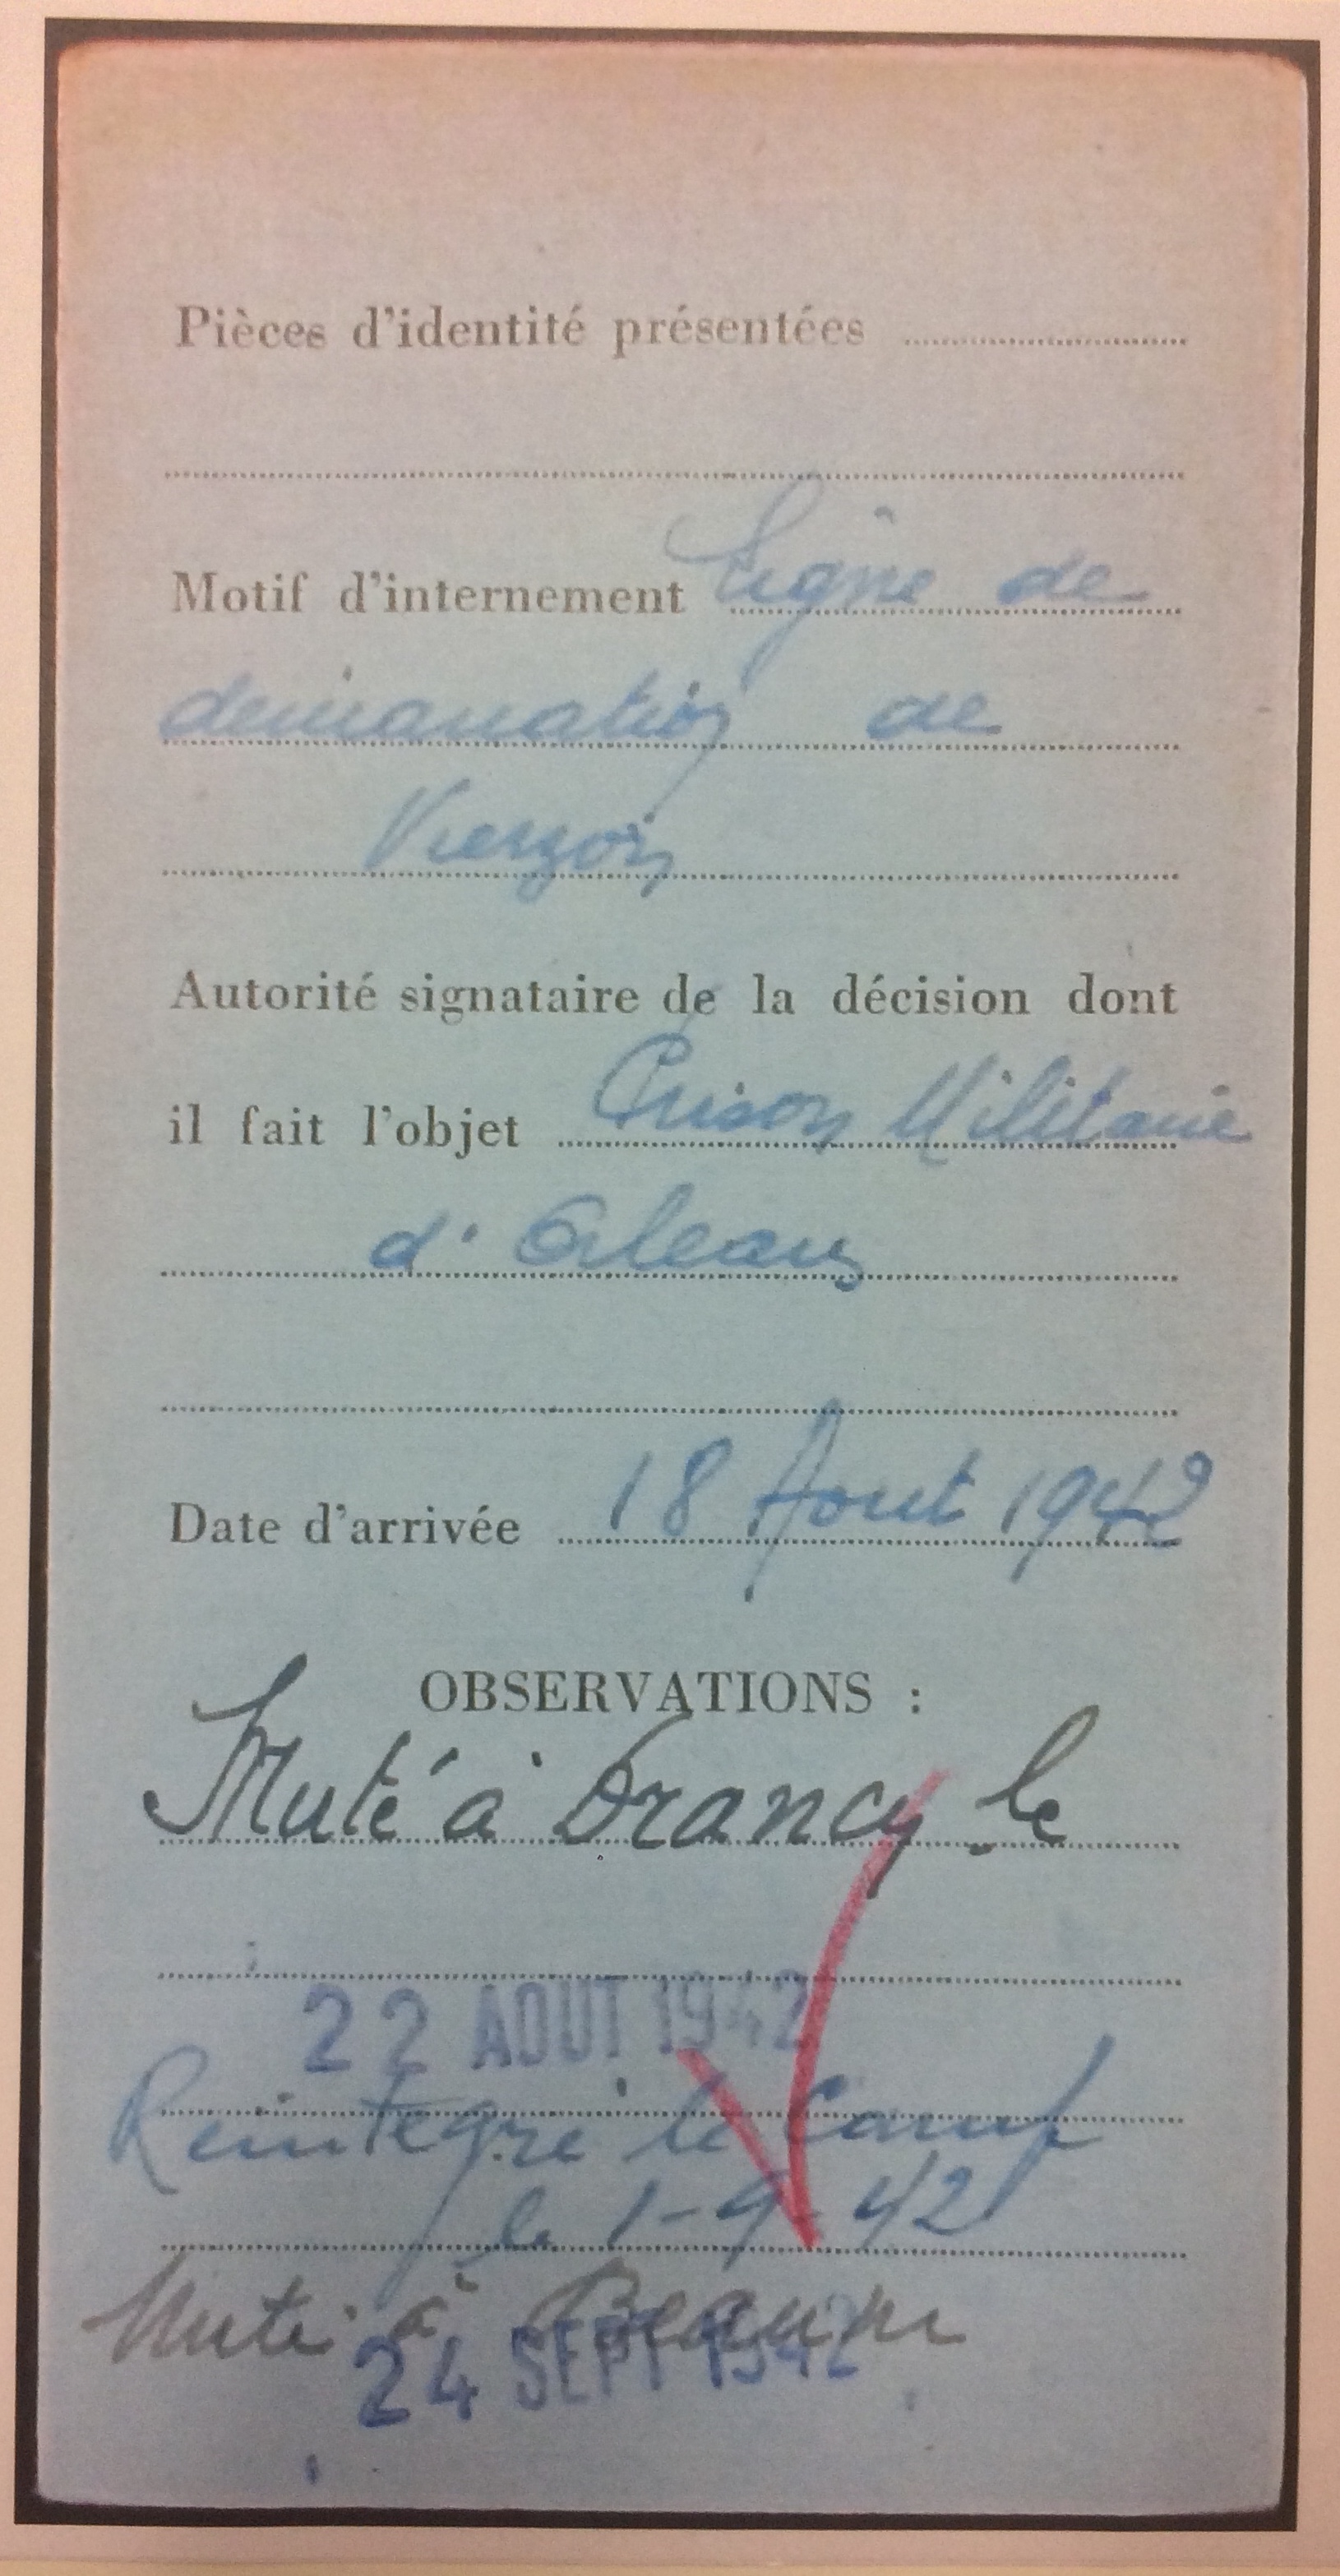 Pièces d'identité présentées
Motif d'internement Ligne de
demarcation de
Vierzon
Autorité signataire de la décision dont
il fait l'objet Prison Militaire
d'Orleans
Date d'arrivée 18 Aout 1942
OBSERVATIONS :
Muté à Drancy le
22 AOUT 1942
Reintegré le Camp
le 1-9-42
Muté à Beaune
24 SEPT 1942